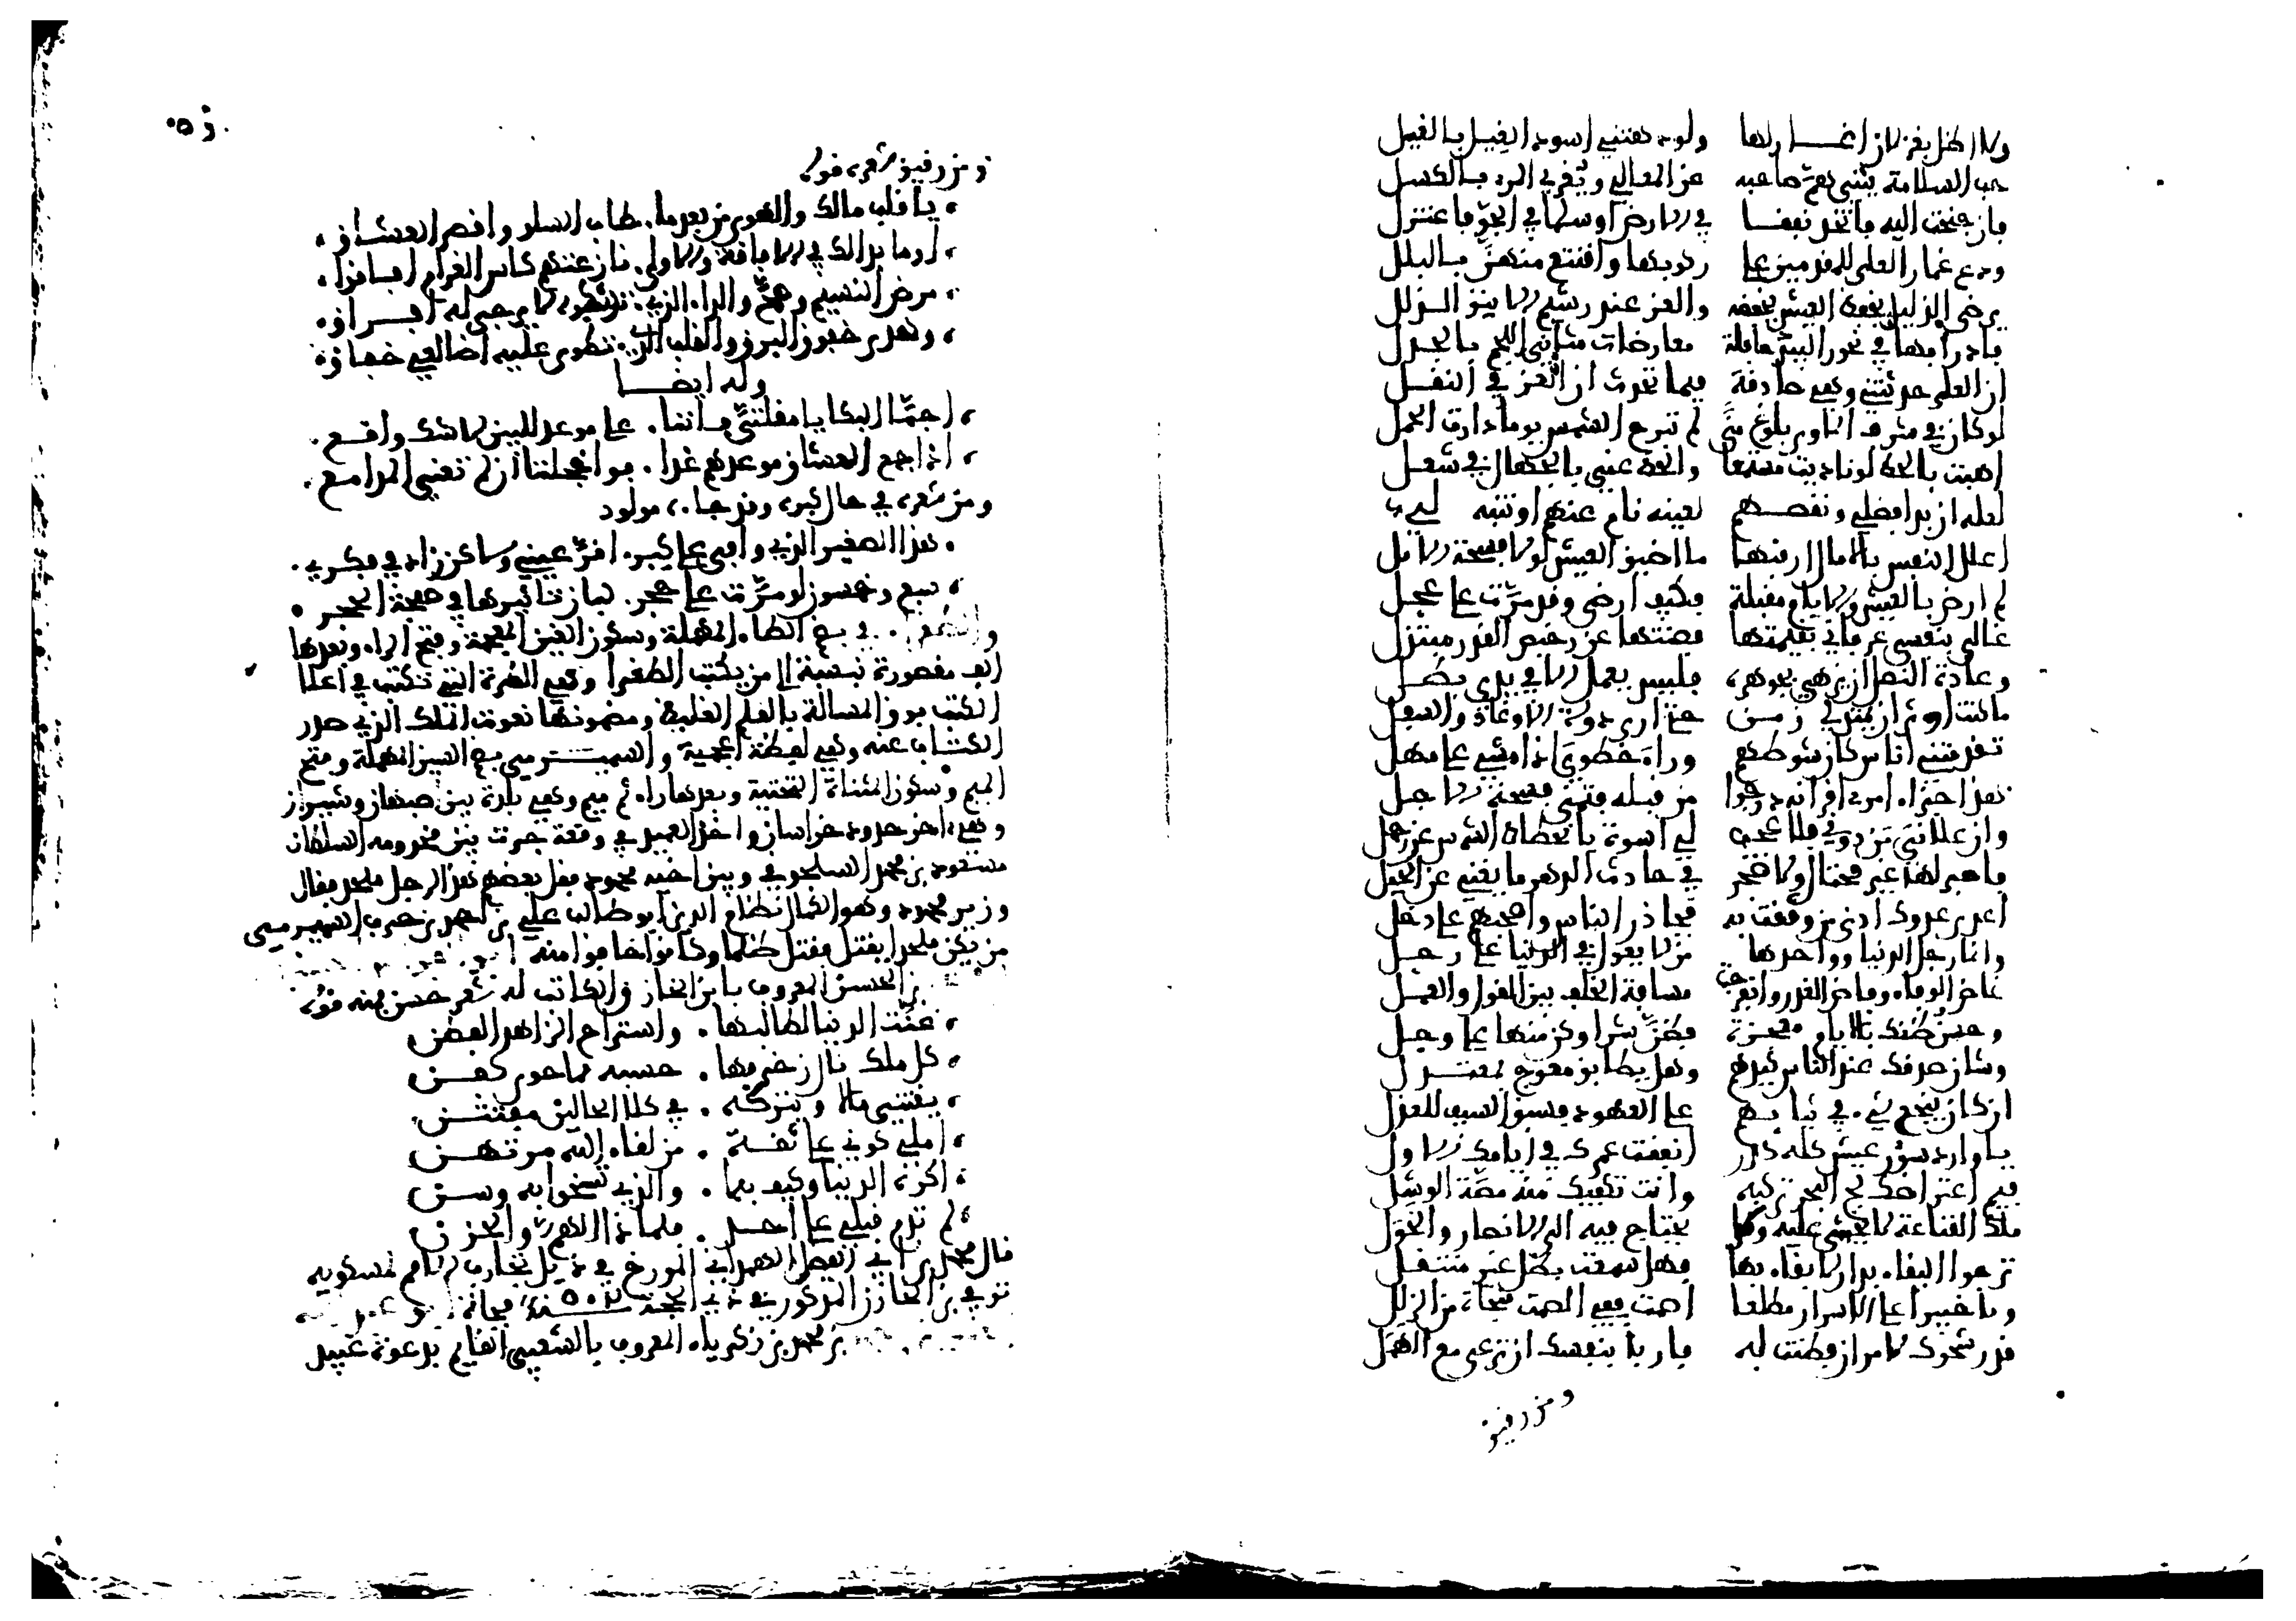 ولا اخل بغزلان اغازلها ولو دهتني اسود الغيل بالغيل
حب السلامة يثني هم صاحبه عن المعالي ويغري المرء بالكسل
فان جنحت اليه فاتخذ نفقا في الارض او سلما في الجو فاعتزل
ودع غمار العلى للمقدمين على ركوبها واقتنع منهن بالبلل
يرضى الذليل بخفض العيش يخفضه والعز عند رسيم الاينق الذلل
فادرأ بها في نحور البيد حافلة معارضات مثاني اللجم بالجدل
ان العلى حدثتني وهي صادقة فيما تحدث ان العز في النقل
لو كان في شرف الماوى بلوغ منى لم تبرح الشمس يوما دارة الحمل
اهبت بالحظ لو ناديت مستمعا والحظ عني بالجهال في شغل
لعله ان بدا فضلي ونقصهم لعينه نام عنهم او تنبه لي
اعلل النفس بالامال ارقبها ما اضيق العيش لولا فسحة الامل
لم ارض بالعيش والايام مقبلة فكيف ارضى وقد مرت على عجل
غالى بنفسي عرفاني بقيمتها فصنتها عن رخيص القدر مبتذل
وعادة النصل ان يزهى بجوهره فليس يعمل الا في يدي بطل
ما كنت اوثر ان يمتد بي زمن حتى ارى دولة الاوغاد والسفل
تقدمتني اناس كان شوطهم وراء خطوي اذ امشي على مهل
هذا جزاء امرء اقرانه درجوا من قبله فتمنى فسحة الاجل
وان علاني من دوني فلا عجب لي اسوة بانحطاط الشمس عن زحل
فاصبر لها غير محتال ولا ضجر في حادث الدهر ما يغني عن الحيل
اعدى عدوك ادنى من وثقت به فحاذر الناس واصحبهم على دخل
وانما رجل الدنيا وواحدها من لا يعول في الدنيا على رجل
غاض الوفاء وفاض الغدر وانفرجت مسافة الخلف بين القول والعمل
وحسن ظنك بالايام معجزة فظن شرا وكن منها على وجل
وشان صدقك عند الناس كذبهم وهل يطابق معوج بمعتدل
ان كان ينجع شيء في ثباتهم على العهود فسبق السيف للعذل
يا واردا سؤر عيش كله كدر انفقت عمرك في ايامك الاول
فيم اعتراضك لج البحر تركبه وانت تكفيك منه مصة الوشل
ملك القناعة لا يخشى عليه ولا يحتاج فيه الى الانصار والخول
ترجو البقاء بدار لا بقاء بها فهل سمعت بظل غير منتقل
ويا خبيرا على الاسرار مطلعا اصمت ففي الصمت منجاة من الزلل
قد رشحوك لامر ان فطنت له فاربأ بنفسك ان ترعى مع الهمل
ومن رقيق
ومن رقيق شعره قوله
يا قلب مالك والهوى من بعد ما طاب السلو واقصر العشاق
او ما بدا لك في الافاقة والاولى نازعتهم كاس الغرام افاقوا
مرض النسيم وصح والداء الذي تشكوه لا يرجى له افراق
وهدى خفوق البرق والقلب الذي تطوى عليه اضالعي خفاق
وله ايضا
اجما البكا يا مقلتي فاننا على موعد للبين لا شك واقع
اذا جمع العشاق موعدهم غدا فوا خجلتا ان لم تعني المدامع
ومن شعره في حال كبره وقد جاءه مولود
هذا الصغير الذي وافى على كبر اقر عيني ولاكن زاد في فكري
سبع وخمسون لو مرت على حجر لبان تاثيرها في صفحة الحجر
بضم الطاء المهملة وسكون الغين المعجمة وفتح الراء وبعدها
الف مقصورة نسبة الى من يكتب الطغرا وهي الطرة التي تكتب في اعلا
الكتب فوق البسملة بالقلم الغليظ ومضمونها نعوت الملك الذي صدر
الكتاب عنه وهي لفظة اعجمية والسميرمي بضم السين المهملة وفتح
الميم وسكون المثناة التحتية وبعدها راء ثم ميم وهي بلدة بين اصبهان وشيراز
وهي اخر حدود خراسان واخذ العميد في وقعة جرت بين مخدومه السلطان
مسعود بن محمد السلجوقي وبين اخيه محمود فقل بعضهم هذا الرجل ملحد فقال
وزير محمود وهو الكمال نظام الدين ابو طالب علي بن احمد بن حرب السميرمي
من يكن ملحدا يقتل فقتل ظلما وكانوا خافوا منه
بن الحسن المعروف بابن الخازن الكاتب له شعر حسن فمنه قوله
عنت الدنيا لطالبها واستراح الزاهد الفطن
كل ملك نال زخرفها حسبه مما حوى كفن
يقتني مالا ويتركه في كلا الحالين مفتتن
املي كوني على ثقة من لقاء الله مرتهن
اكره الدنيا وكيف بها والذي تسخوا به وسن
لم تدم قبلي على احد فلماذا الهم والحزن
قال محمد بن ابي الفضل الهمداني المورخ في ذيل تجارب الامم لمسكويه
توفي بن الخازن المذكور في ذي الحجة سنة ٥٠٢ فجاة
بن محمد بن زكرياء المعروف بالشيعي القايم بدعوة عبيد